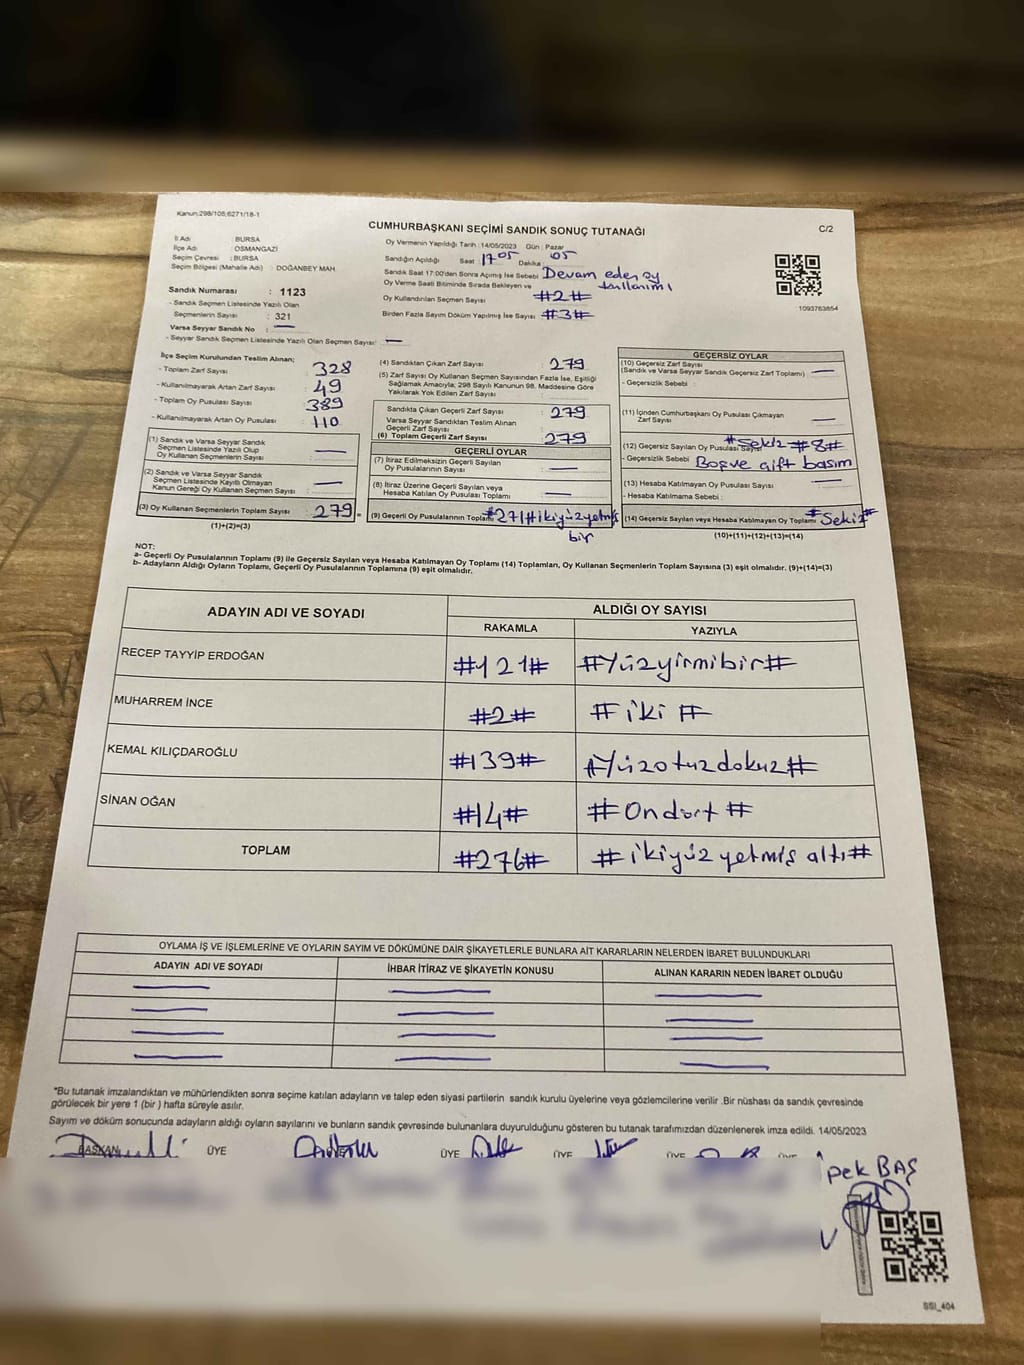 Kanun:298/105;6271/18-1
CUMHURBAŞKANI SEÇİMİ SANDIK SONUÇ TUTANAĞI
C/2
İl Adı : BURSA
İlçe Adı : OSMANGAZİ
Seçim Çevresi : BURSA
Seçim Bölgesi (Mahalle Adı) : DOĞANBEY MAH.
Sandık Numarası : 1123
- Sandık Seçmen Listesinde Yazılı Olan
Seçmenlerin Sayısı : 321
Varsa Seyyar Sandık No : —
- Seyyar Sandık Seçmen Listesinde Yazılı Olan Seçmen Sayısı: —
Oy Vermenin Yapıldığı Tarih : 14/05/2023 Gün : Pazar
Sandığın Açıldığı Saat 17 05 Dakika : 05
Sandık Saat 17:00'den Sonra Açılmış İse Sebebi Devam eden oy kullanımı
Oy Verme Saati Bitiminde Sırada Bekleyen ve
Oy Kullandırılan Seçmen Sayısı #2#
Birden Fazla Sayım Döküm Yapılmış İse Sayısı #3#
1093763854
İlçe Seçim Kurulundan Teslim Alınan;
- Toplam Zarf Sayısı : 328
- Kullanılmayarak Artan Zarf Sayısı : 49
- Toplam Oy Pusulası Sayısı : 389
- Kullanılmayarak Artan Oy Pusulası : 110
(1) Sandık ve Varsa Seyyar Sandık
Seçmen Listesinde Yazılı Olup
Oy Kullanan Seçmenlerin Sayısı : —
(2) Sandık ve Varsa Seyyar Sandık
Seçmen Listesinde Kayıtlı Olmayan
Kanun Gereği Oy Kullanan Seçmen Sayısı : —
(3) Oy Kullanan Seçmenlerin Toplam Sayısı : 279
(1)+(2)=(3)
(4) Sandıktan Çıkan Zarf Sayısı : 279
(5) Zarf Sayısı Oy Kullanan Seçmen Sayısından Fazla İse, Eşitliği
Sağlamak Amacıyla; 298 Sayılı Kanunun 98. Maddesine Göre
Yakılarak Yok Edilen Zarf Sayısı : —
Sandıkta Çıkan Geçerli Zarf Sayısı : 279
Varsa Seyyar Sandıktan Teslim Alınan
Geçerli Zarf Sayısı :
(6) Toplam Geçerli Zarf Sayısı : 279
GEÇERLİ OYLAR
(7) İtiraz Edilmeksizin Geçerli Sayılan
Oy Pusulalarının Sayısı : —
(8) İtiraz Üzerine Geçerli Sayılan veya
Hesaba Katılan Oy Pusulası Toplamı : —
(9) Geçerli Oy Pusulalarının Toplamı #271#ikiyüzyetmiş
bir
GEÇERSİZ OYLAR
(10) Geçersiz Zarf Sayısı
(Sandık ve Varsa Seyyar Sandık Geçersiz Zarf Toplamı) : —
- Geçersizlik Sebebi :
(11) İçinden Cumhurbaşkanı Oy Pusulası Çıkmayan
Zarf Sayısı : —
(12) Geçersiz Sayılan Oy Pusulası Sayısı #Sekiz #8#
- Geçersizlik Sebebi Boş ve çift basım
(13) Hesaba Katılmayan Oy Pusulası Sayısı : —
- Hesaba Katılmama Sebebi :
(14) Geçersiz Sayılan veya Hesaba Katılmayan Oy Toplamı #Sekiz#
(10)+(11)+(12)+(13)=(14)
NOT:
a- Geçerli Oy Pusulalarının Toplamı (9) ile Geçersiz Sayılan veya Hesaba Katılmayan Oy Toplamı (14) Toplamları, Oy Kullanan Seçmenlerin Toplam Sayısına (3) eşit olmalıdır. (9)+(14)=(3)
b- Adayların Aldığı Oyların Toplamı, Geçerli Oy Pusulalarının Toplamına (9) eşit olmalıdır.
ADAYIN ADI VE SOYADI
ALDIĞI OY SAYISI
RAKAMLA YAZIYLA
RECEP TAYYİP ERDOĞAN #121# #Yüzyirmibir#
MUHARREM İNCE #2# #iki#
KEMAL KILIÇDAROĞLU #139# #Yüzotuzdokuz#
SİNAN OĞAN #14# #Ondört#
TOPLAM #276# #ikiyüzyetmiş altı#
OYLAMA İŞ VE İŞLEMLERİNE VE OYLARIN SAYIM VE DÖKÜMÜNE DAİR ŞİKAYETLERLE BUNLARA AİT KARARLARIN NELERDEN İBARET BULUNDUKLARI
ADAYIN ADI VE SOYADI İHBAR İTİRAZ VE ŞİKAYETİN KONUSU ALINAN KARARIN NEDEN İBARET OLDUĞU
*Bu tutanak imzalandıktan ve mühürlendikten sonra seçime katılan adayların ve talep eden siyasi partilerin sandık kurulu üyelerine veya gözlemcilerine verilir .Bir nüshası da sandık çevresinde
görülecek bir yere 1 (bir ) hafta süreyle asılır.
Sayım ve döküm sonucunda adayların aldığı oyların sayılarını ve bunların sandık çevresinde bulunanlara duyurulduğunu gösteren bu tutanak tarafımızdan düzenlenerek imza edildi. 14/05/2023
BAŞKAN ÜYE ÜYE ÜYE ÜYE ÜYE
pek BAŞ
SSI_404